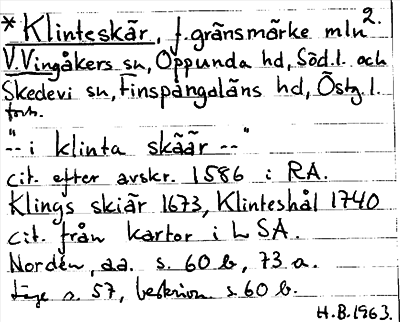 * Klinteskär, f. gränsmärke mln 2.
V. Vingåkers sn, Oppunda hd, Söd. l. och
Skedevi sn, Finspångaläns hd, Östg. l.
forts.
"-- i klinta skäär --"
cit. efter avskr. 1586 i RA.
Klings skiär 1673, Klinteshål 1740
cit. från kartor i LSA.
Nordén, aa. s. 60 b, 73 a.
Läge s. 57, beskrivn s. 60 b.
H.B. 1963.